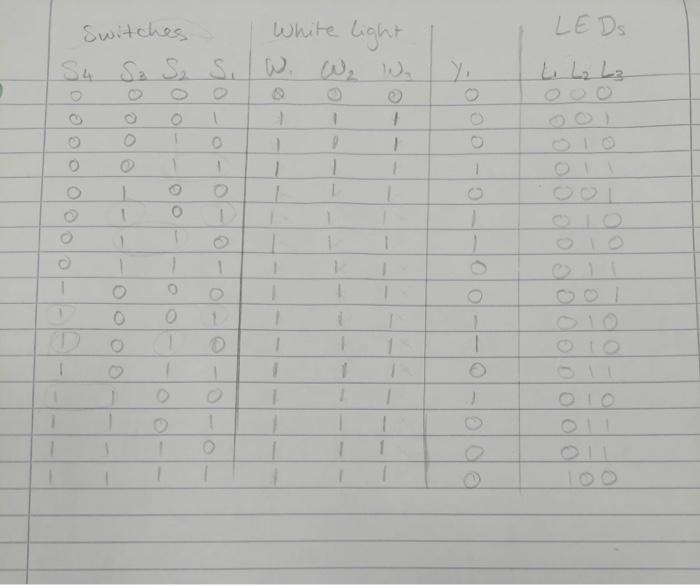 Switches White Light LEDs
S4 S3 S2 S1 W1 W2 W3 Y1 L1 L2 L3
0 0 0 0 0 0 0 0 0 0 0
0 0 0 1 1 1 1 0 0 0 1
0 0 1 0 1 1 1 0 0 1 0
0 0 1 1 1 1 1 1 0 1 1
0 1 0 0 1 1 1 0 0 0 1
0 1 0 1 1 1 1 1 0 1 0
0 1 1 0 1 1 1 1 0 1 0
0 1 1 1 1 1 1 0 0 1 1
1 0 0 0 1 1 1 0 0 0 1
1 0 0 1 1 1 1 1 0 1 0
1 0 1 0 1 1 1 1 0 1 0
1 0 1 1 1 1 1 0 0 1 1
1 1 0 0 1 1 1 1 0 1 0
1 1 0 1 1 1 1 0 0 1 1
1 1 1 0 1 1 1 0 0 1 1
1 1 1 1 1 1 1 0 1 0 0